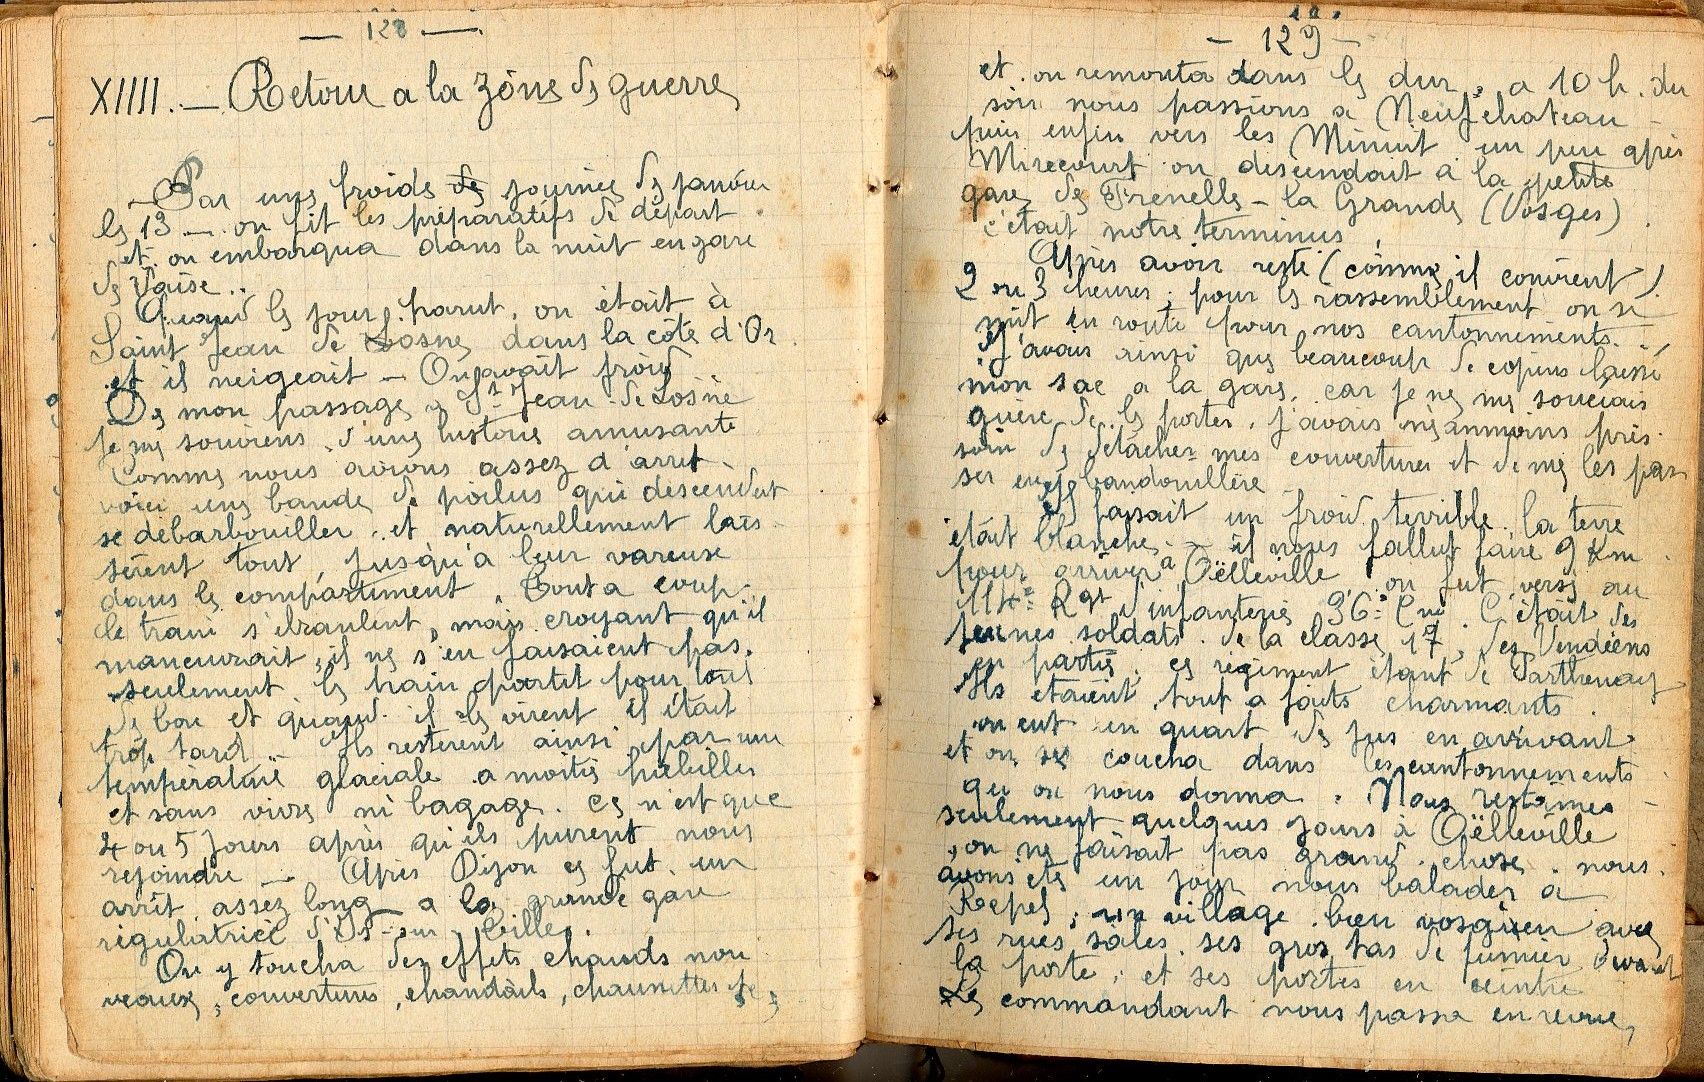 — 128 —
XIIII. — Retour a la zône de guerre
— Par une froide de journée de janvier
le 13 — on fit les préparatifs de départ
et on embarqua dans la nuit en gare
de Vaise..
Quand le jour parut, on était à
Saint Jean de Losne, dans la côte d'Or.
et il neigeait — On avait froid
De mon passage a St Jean de Losne
je me souviens d'une histoire amusante
Comme nous avions assez d'arret
voici une bande de poilus qui descendent
se débarbouiller et naturellement lais-
sèrent tout, jusqu'à leur vareuse
dans le compartiment. Tout a coup
le train s'ébranlent, mais croyant qu'il
maneuvrait, il ne s'en faisaient pas.
seulement le train partit pour tout
de bon et quand il le virent il était
trop tard — Ils resterent ainsi par une
température glaciale a moitié habillés
et sans vivre ni bagage. Ce n'est que
4 ou 5 jours après qu'ils purent nous
rejoindre — Après Dijon ce fut un
arrêt assez long a la grande gare
régulatrice d'Is-sur-Tille.
On y toucha des effets chauds nou
veaux, couvertures, chandails, chaussettes
— 129 —
et on remonta dans le dur, a 10 h. du
soir nous passions a Neufchateau —
puis enfin vers les Minuit un peu après
Mirecourt on descendait à la petite
gare de Frenelle-la Grande (Vosges)
c'était notre terminus.
Après avoir resté (comme il convient)
2 ou 3 heures, pour le rassemblement on se
mit en route pour nos cantonnements.
J'avais ainsi que beaucoup de copins laissé
mon sac a la gare, car je ne me souciais
guère de le porter, j'avais néanmoins pris
soin de détacher mes couvertures et de me les pas
ser en bandouillère
Il faisait un froid terrible. la terre
était blanche — il nous fallut faire 9 Km
pour arriver à Oëlleville on fut versé au
114e Rgt d'infanterie 36e Cnie. C'était des
jeunes soldats de la classe 17, des Vendéens
en partie, ce régiment étant de Parthenay
Ils étaient tout a faits charmants.
on eut un quart de jus en arrivant
et on se coucha dans les cantonnements
qu'on nous donna. Nous restâmes
seulement quelques jours à Oëlleville
, on ne faisait pas grand chose. nous
avons été un jour nous balader a
Repel, un village bien vosgien avec
ses rues sales, ses gros tas de fumier devant
la porte, et ses portes en ceintre
Le commandant nous passa en revue,